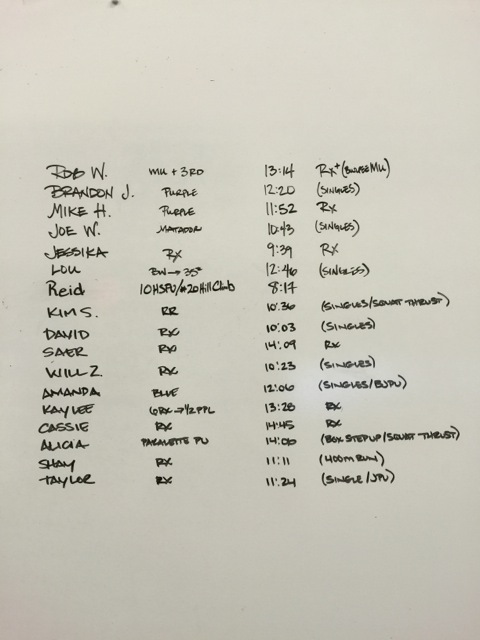 ROB W. MU + 3RD 13:14 RX+ (BURPEE MU)
BRANDON J. PURPLE 12:20 (SINGLES)
MIKE H. PURPLE 11:52 RX
JOE W. MATADOR 10:43 (SINGLES)
JESSIKA RX 9:39 RX
LOU BW → 35# 12:46 (SINGLES)
Reid 10HSPU/#20 Hill Climb 8:17
KIM S. RR 10:36 (SINGLES/SQUAT THRUST)
DAVID RX 10:03 (SINGLES)
SAER RX 14:09 RX
WILL Z. RX 10:23 (SINGLES)
AMANDA BLUE 12:06 (SINGLES/BJPU)
KAYLEE 6RX → 1/2 PPL 13:28 RX
CASSIE RX 14:45 RX
ALICIA PARALETTE PU 14:06 (BOX STEP UP/SQUAT THRUST)
SHAY RX 11:11 (400m RUN)
TAYLOR RX 11:24 (SINGLE/JPU)